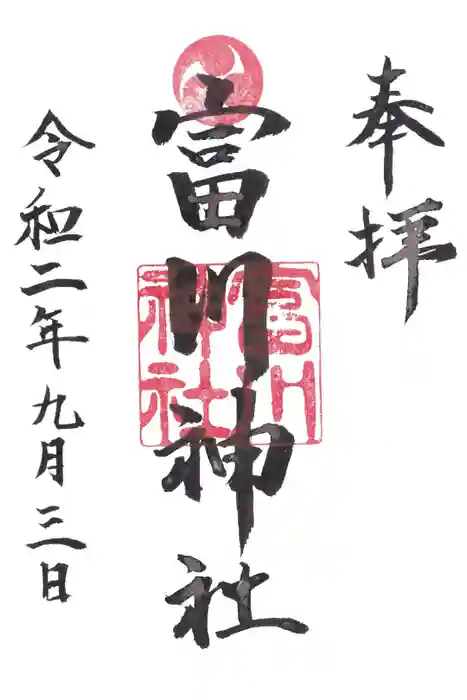 奉拝
富川神社
富川
神社
令和二年九月三日